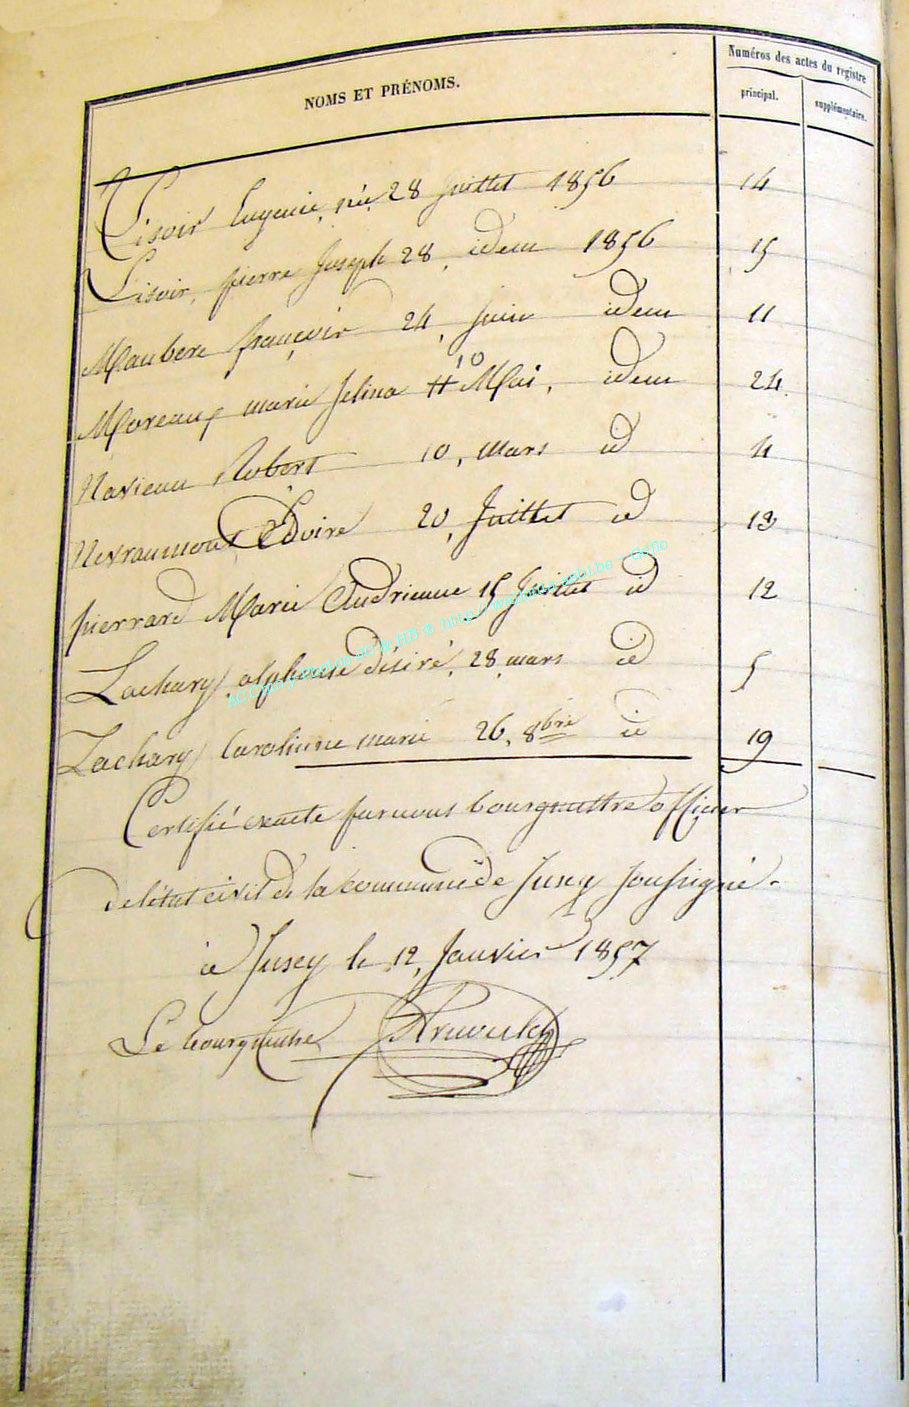 NOMS ET PRÉNOMS.
Numéros des actes du registre
principal.
supplémentaire.
Lisoir Eugenie, née, 28 Juillet 1856 14
Lisoir, pierre Joseph 28, idem 1856 15
Maubere françois 24, Juin idem 11
Moreaux marie Jelina 10 Mai, idem 24
Navieau Robert 10, mars id 4
Nevraumont Edvire 20, Juillet id 13
pierrard Marie Andrienne 15 Juillet id 12
Zachary alphonse désiré, 28 mars id 5
Zachary Carolinne marie 26, 8bre id 19
Certifié exacte par nous bourgmettre officier
de l'état civil de la commune de Jusey soussigné.
à Jusey le 12, Janvier 1857
Le bourgmettre